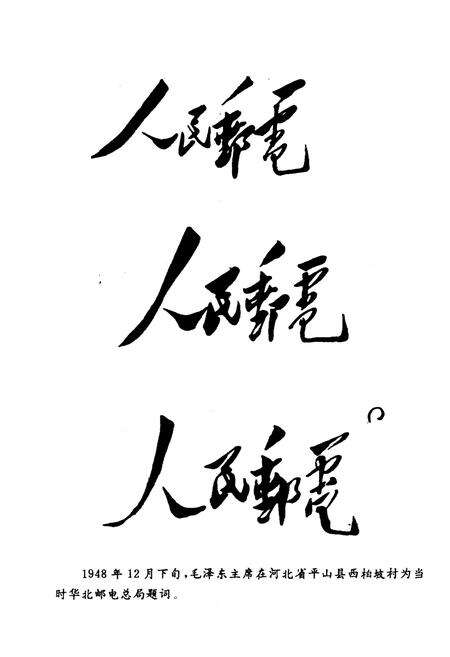 人民郵電
人民郵電
人民郵電
1948年12月下旬,毛泽东主席在河北省平山县西柏坡村为当
时华北邮电总局题词。